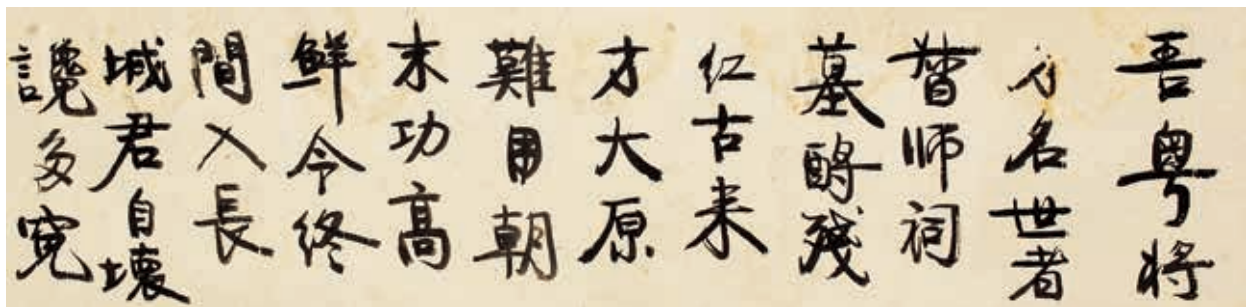 吾粤将
才名世者
督师祠
墓酹殘
红古来
才大原
難用朝
末功高
鲜令终
間入長
城君自壞
讒多冤